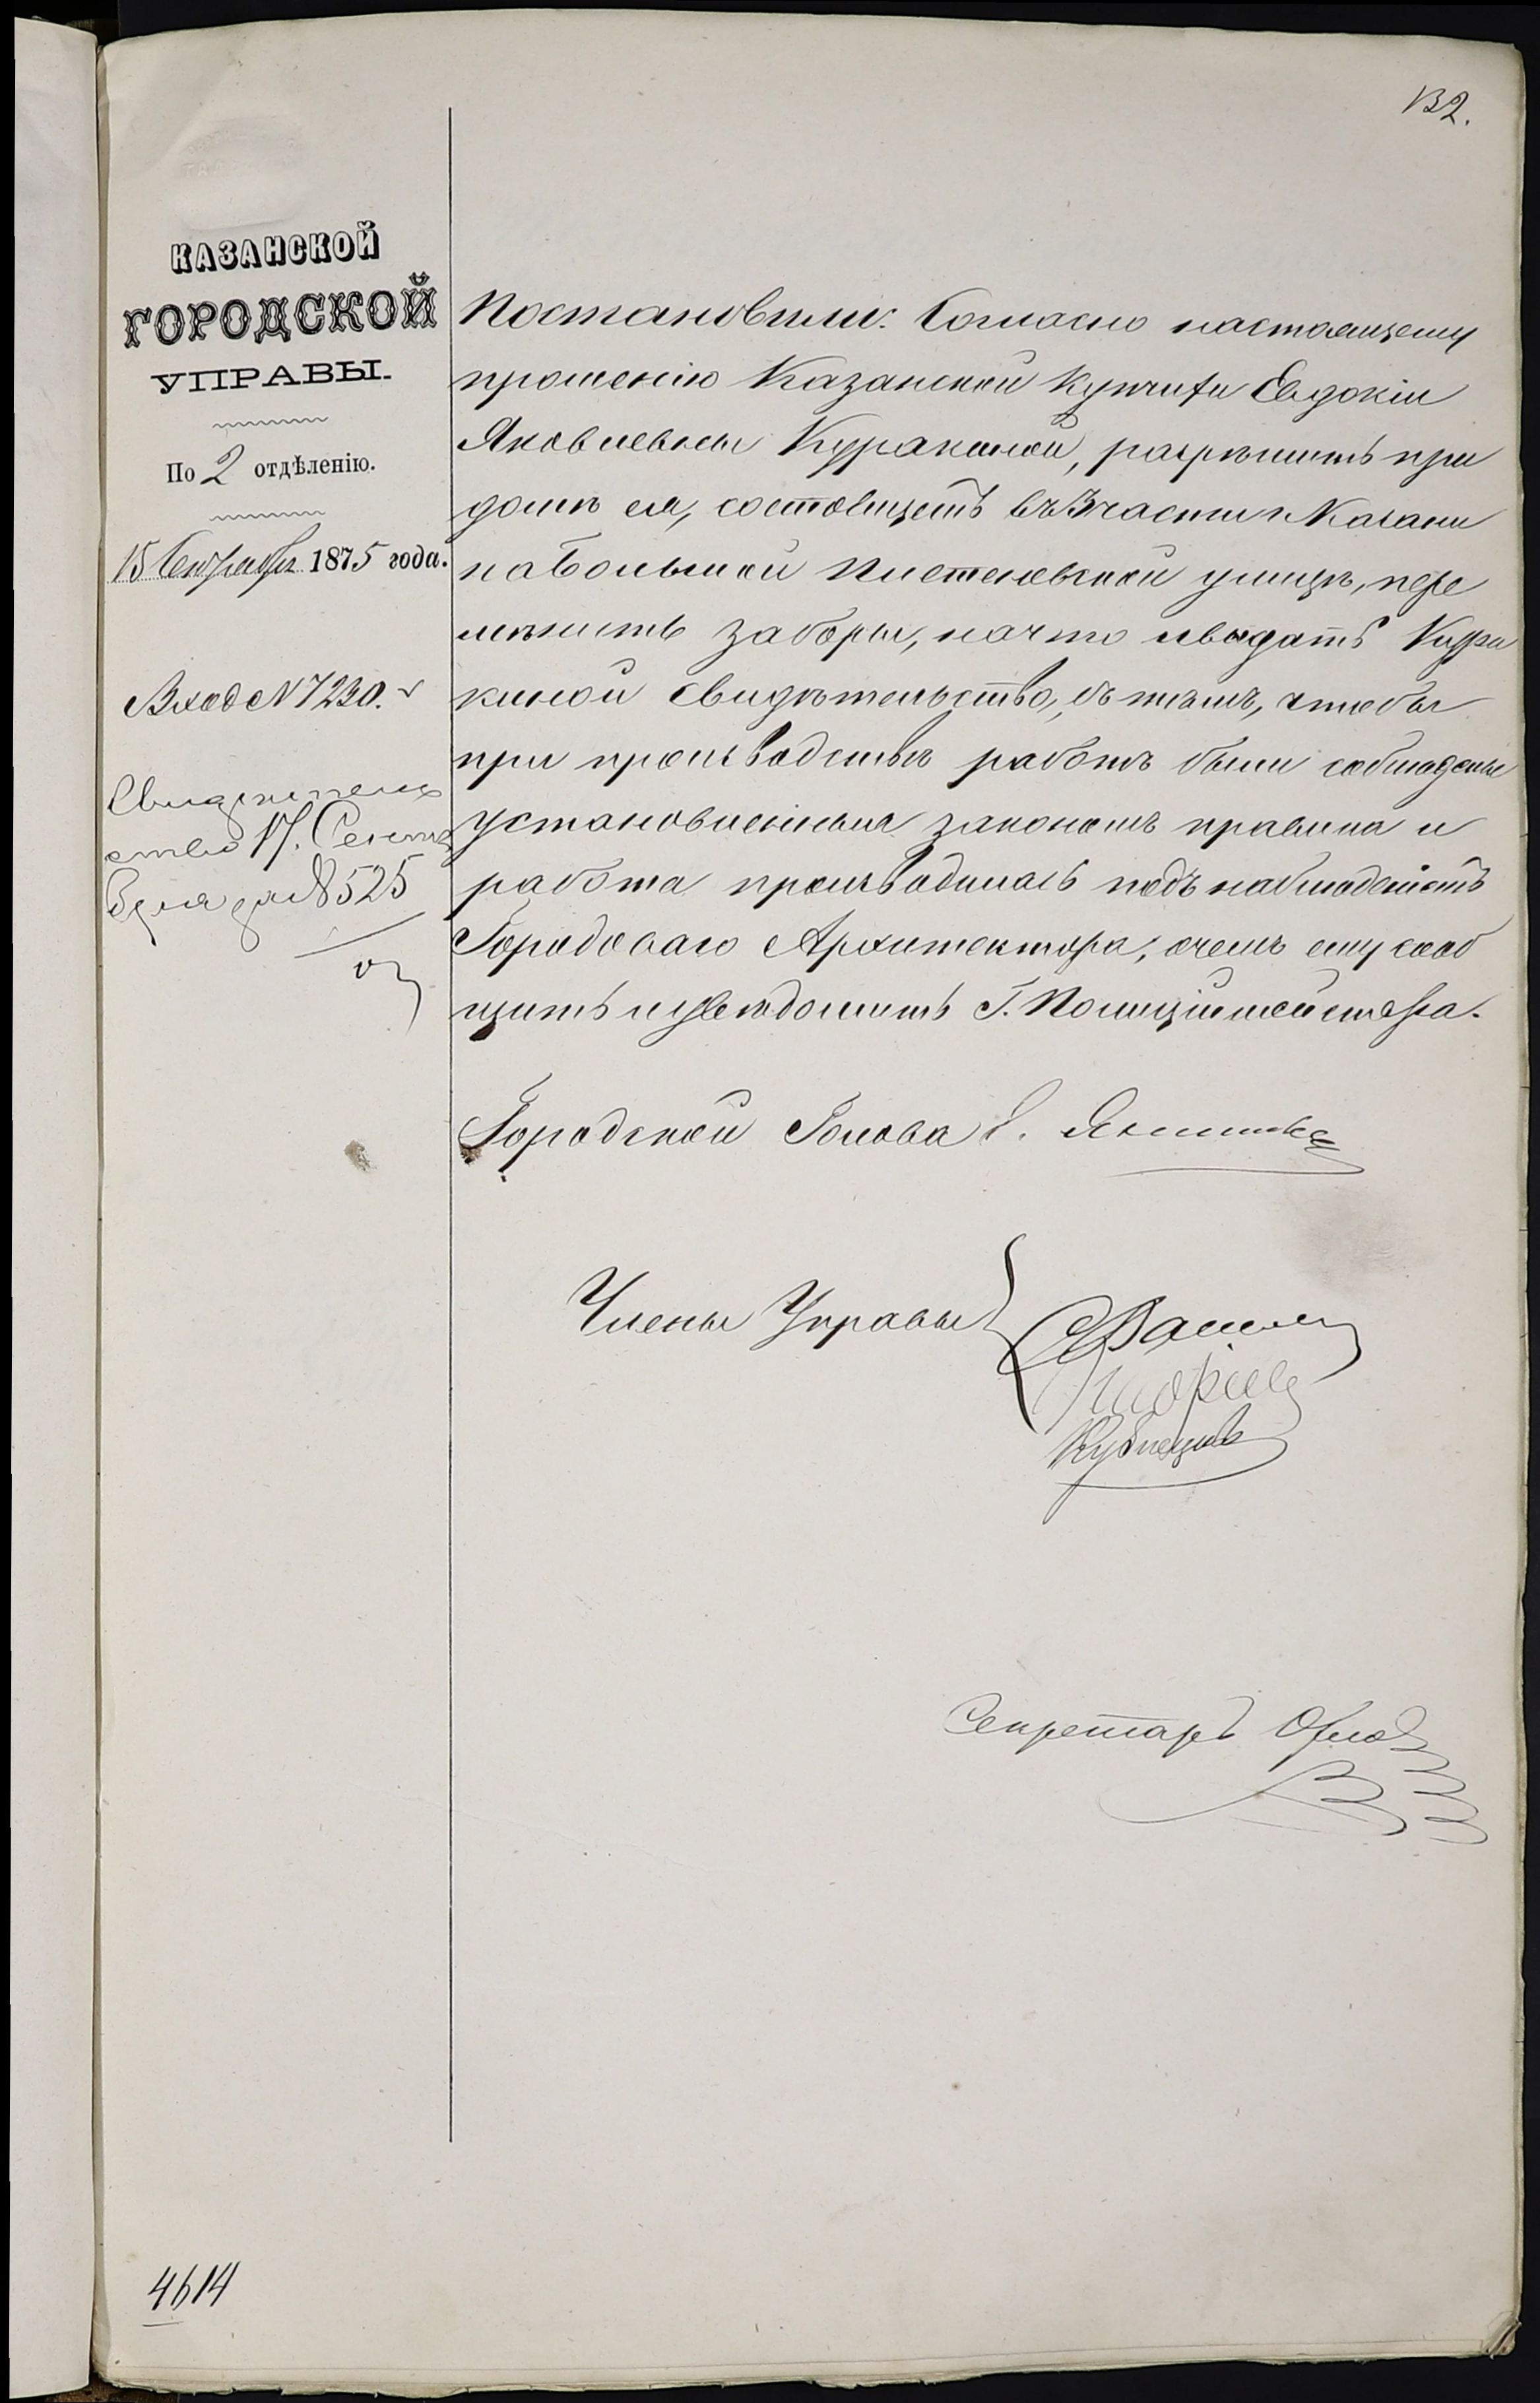 132.
КАЗАНСКОЙ
ГОРОДСКОЙ
УПРАВЫ.
По 2 отдѣленію.
15 Сентября 1875 года.
Вход №7230.
Свидѣтель
ство 17. Сентя
бря за №8525
Постановили: Согласно настоящему
прошенію Казанской купчихи Евдокіи
Яковлевны Куракиной, разрѣшить при
домѣ ея, состоящемъ въ 3 части г. Казани
на Большой Мистелевской улицѣ, пере
мѣнить заборы, на что и выдать Кура
киной свидѣтельство, съ тѣмъ, чтобы
при производствѣ работъ были соблюдены
установленныя закономъ правила и
работа производилась подъ наблюденіемъ
Городоваго Архитектора, о чемъ ему сооб
щить и увѣдомить Г. Полиціймейстера.
Городской Голова Э. Янишевс
Члены Управы
Кузнецовъ
Секретарь Орлов
4614